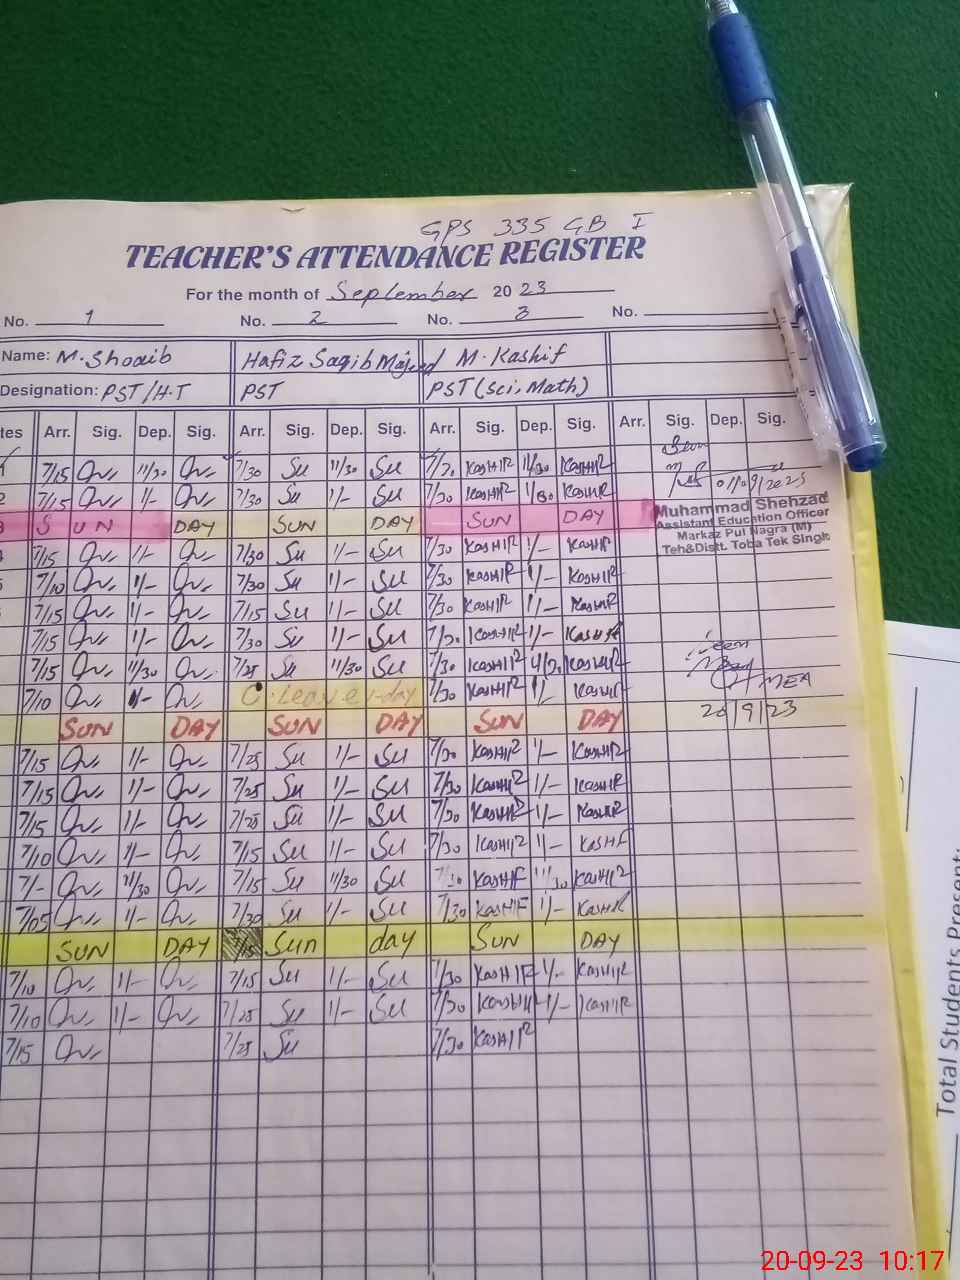 GPS 335 GB I
TEACHER'S ATTENDANCE REGISTER
For the month of September 20 23
No. 1 No. 2 No. 3 No.
Name: M. Shoaib Hafiz Saqib Majeed M. Kashif
Designation: PST/H.T PST PST (Sci, Math)
tes Arr. Sig. Dep. Sig. Arr. Sig. Dep. Sig. Arr. Sig. Dep. Sig. Arr. Sig. Dep. Sig.
1 7/15 11/30 7/30 Su 11/30 Su 7/30 KASHIF 11/30 KASHIF
2 7/15 1/- 7/30 Su 1/- Su 7/30 KASHIF 1/30 KASHIF 01/09/2023
3 SUN DAY SUN DAY SUN DAY
Muhammad Shehzad
Assistant Education Officer
Markaz Pul Nagra (M)
Teh&Distt. Toba Tek Singh
4 7/15 1/- 7/30 Su 1/- Su 7/30 KASHIF 1/- KASHIF
5 7/10 1/- 7/30 Su 1/- Su 7/30 KASHIF 1/- KASHIF
7/15 1/- 7/15 Su 1/- Su 7/30 KASHIF 1/- KASHIF
7/15 1/- 7/30 Su 1/- Su 7/30 KASHIF 1/- KASHIF
7/15 11/30 7/25 Su 11/30 Su 7/30 KASHIF KASHIF
7/10 1/- C. Leave 1-day 7/30 KASHIF 1/- KASHIF
MEA
20/9/23
SUN DAY SUN DAY SUN DAY
7/15 1/- 7/25 Su 1/- Su 7/30 KASHIF 1/- KASHIF
7/15 1/- 7/25 Su 1/- Su 7/30 KASHIF 1/- KASHIF
7/15 1/- 7/25 Su 1/- Su 7/30 KASHIF 1/- KASHIF
7/10 1/- 7/15 Su 1/- Su 7/30 KASHIF 1/- KASHIF
7/- 11/30 7/15 Su 11/30 Su 7/30 KASHIF 11/30 KASHIF
7/05 1/- 7/30 Su 1/- Su 7/30 KASHIF 1/- KASHIF
SUN DAY Sun day SUN DAY
7/10 1/- 7/15 Su 1/- Su 7/30 KASHIF 1/- KASHIF
7/10 1/- 7/25 Su 1/- Su 7/30 KASHIF 1/- KASHIF
7/15 7/25 Su 7/30 KASHIF
Total Students Present:
20-09-23 10:17